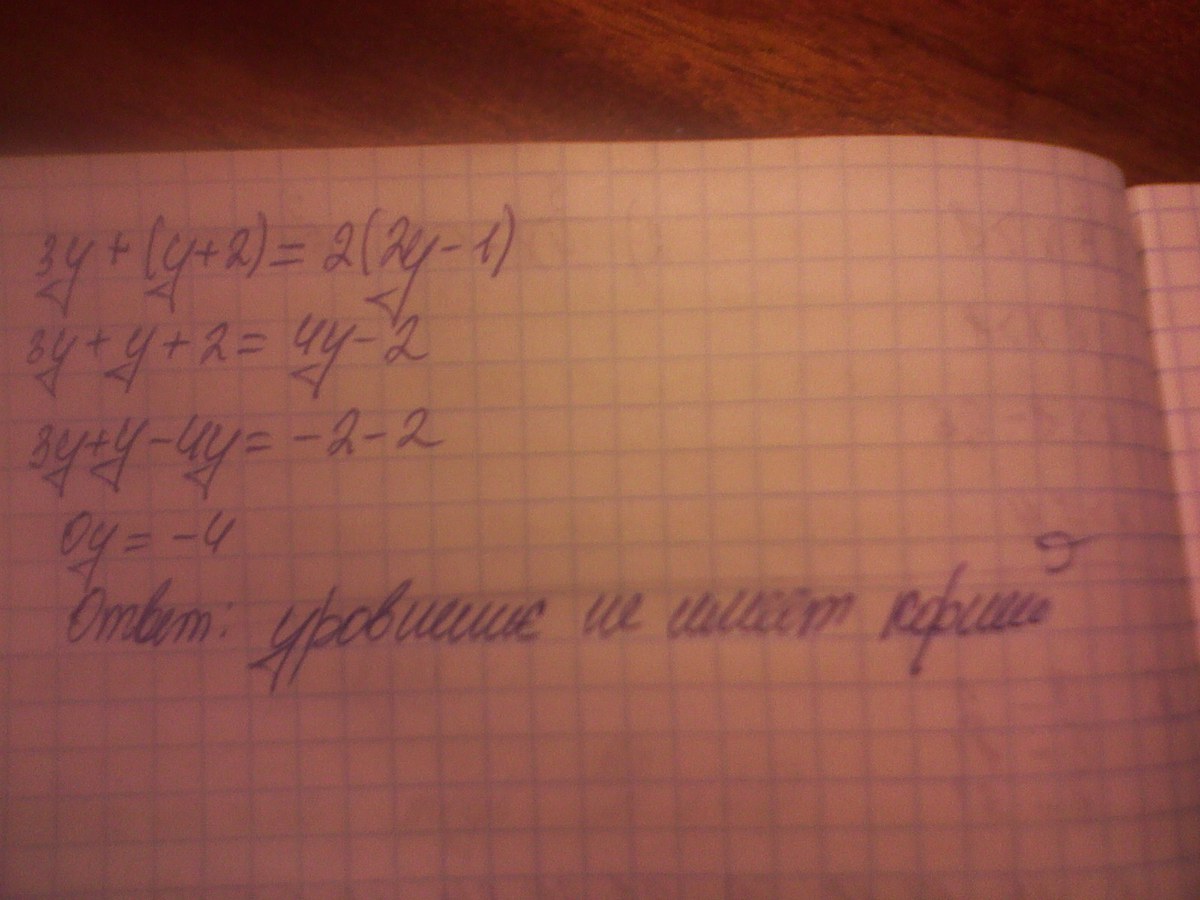 3y + (y+2) = 2(2y - 1)
3y + y + 2 = 4y - 2
3y + y - 4y = -2 - 2
0y = -4
Ответ: уровнение не имеет корней